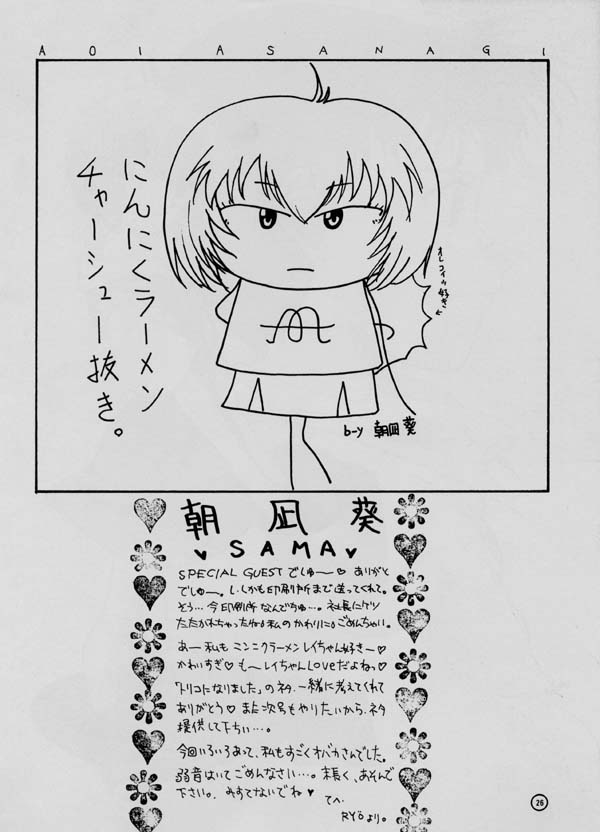 AOI ASANAGI
にんにくラーメン
チャーシュー抜き。
オレコイツ好き
b-y 朝凪 葵
朝 凪 葵
♥ SAMA ♥
SPECIAL GUESTでしゅ〜♡ ありがと
でしゅー。しかも印刷所まで送ってくれて。
そう…今印刷所なんでちゅ…。社長にケツ
たたかれちゃったね♂私のかわりに♂ごめんちゃい。
あー私もニンニクラーメンレイちゃん好きー♡
かわいすぎ♡ も〜レイちゃんLoveだよねっ♡
「トリコになりました」のネタ一緒に考えてくれて
ありがとう♡また次号もやりたいから、ネタ
提供して下ちぃ…。
今回いろいろあって、私もすごくオバカさんでした。
弱音はいてごめんなさい…。末長く、あそんで
下さい。みすてないでね♥
てへ
RYOより。
26